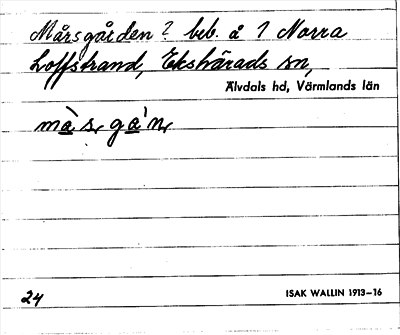 Mårsgården ? beb. å 1 Norra
Loffstrand, Ekshärads sn,
Älvdals hd, Värmlands län
mà̱s̩ ga̱'n̩
24
ISAK WALLIN 1913–16